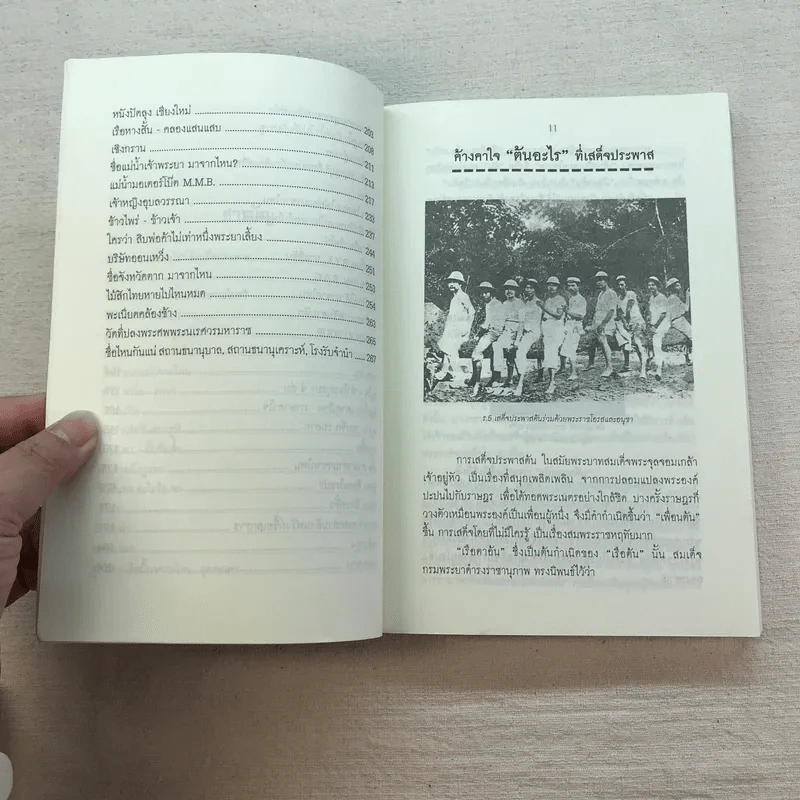 หนังปัตลุง เชียงใหม่
เรือหางสั้น - คลองแสนแสบ 203
เชิงกราน 208
ชื่อแม่น้ำเจ้าพระยา มาจากไหน? 211
แม่น้ำมอเตอร์โบ๊ต M.M.B. 213
เจ้าหญิงอุบลวรรณา 217
ข้าวไพร่ - ข้าวเจ้า 233
ใครว่า สิบพ่อค้าไม่เท่าหนึ่งพระยาเลี้ยง 237
บริษัทออนเหวิ่ง 244
ชื่อจังหวัดตาก มาจากไหน 251
ไม้สักไทยหายไปไหนหมด 253
พะเนียดคล้องช้าง 254
วัดที่ปลงพระศพพระนเรศวรมหาราช 263
ชื่อไหนกันแน่ สถานธนานุบาล, สถานธนานุเคราะห์, โรงรับจำนำ 265
267
11
ค้างคาใจ "ตันอะไร" ที่เสด็จประพาส
ร.5 เสด็จประพาสต้นร่วมด้วยพระราชโอรสและอนุชา
การเสด็จประพาสต้น ในสมัยพระบาทสมเด็จพระจุลจอมเกล้า
เจ้าอยู่หัว เป็นเรื่องที่สนุกเพลิดเพลิน จากการปลอมแปลงพระองค์
ปะปนไปกับราษฎร เพื่อได้ทอดพระเนตรอย่างใกล้ชิด บางครั้งราษฎรก็
วางตัวเหมือนพระองค์เป็นเพื่อนผู้หนึ่ง จึงมีคำกำเนิดขึ้นว่า "เพื่อนต้น"
ขึ้น การเสด็จโดยที่ไม่มีใครรู้ เป็นเรื่องสมพระราชหฤทัยมาก
"เรือตาอ้น" ซึ่งเป็นต้นกำเนิดของ "เรือต้น" นั้น สมเด็จ
กรมพระยาดำรงราชานุภาพ ทรงนิพนธ์ไว้ว่า